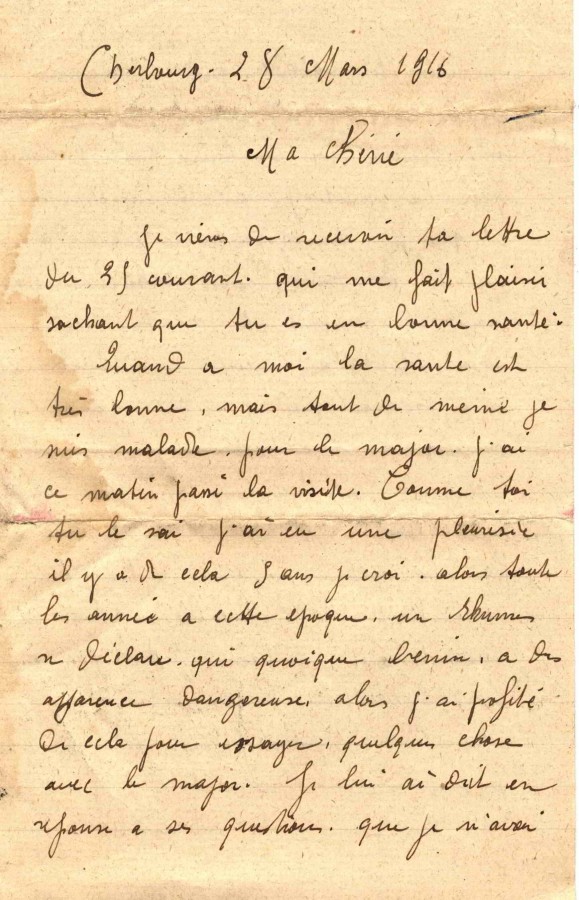 Cherbourg. 28 Mars 1916
Ma Chérié
Je viens de recevoir ta lettre
du 25 courant. qui me fait plaisir
sachant que tu es en bonne santé.
Quand a moi la sante est
très bonne, mais tout de meme je
suis malade. pour le major. J'ai
ce matin passé la visite. Comme toi
tu le sai j'ai eu une pleurisie
il y a de cela 5 ans je croi. alors toute
les anneé a cette epoque, un Rhumes
se déclare. qui quoique benin, a des
apparence dangereuse, alors j'ai profité
de cela pour essayer, quelques chose
avec le major. Je lui ai dit en
reponse a ses questions. que je n'avai